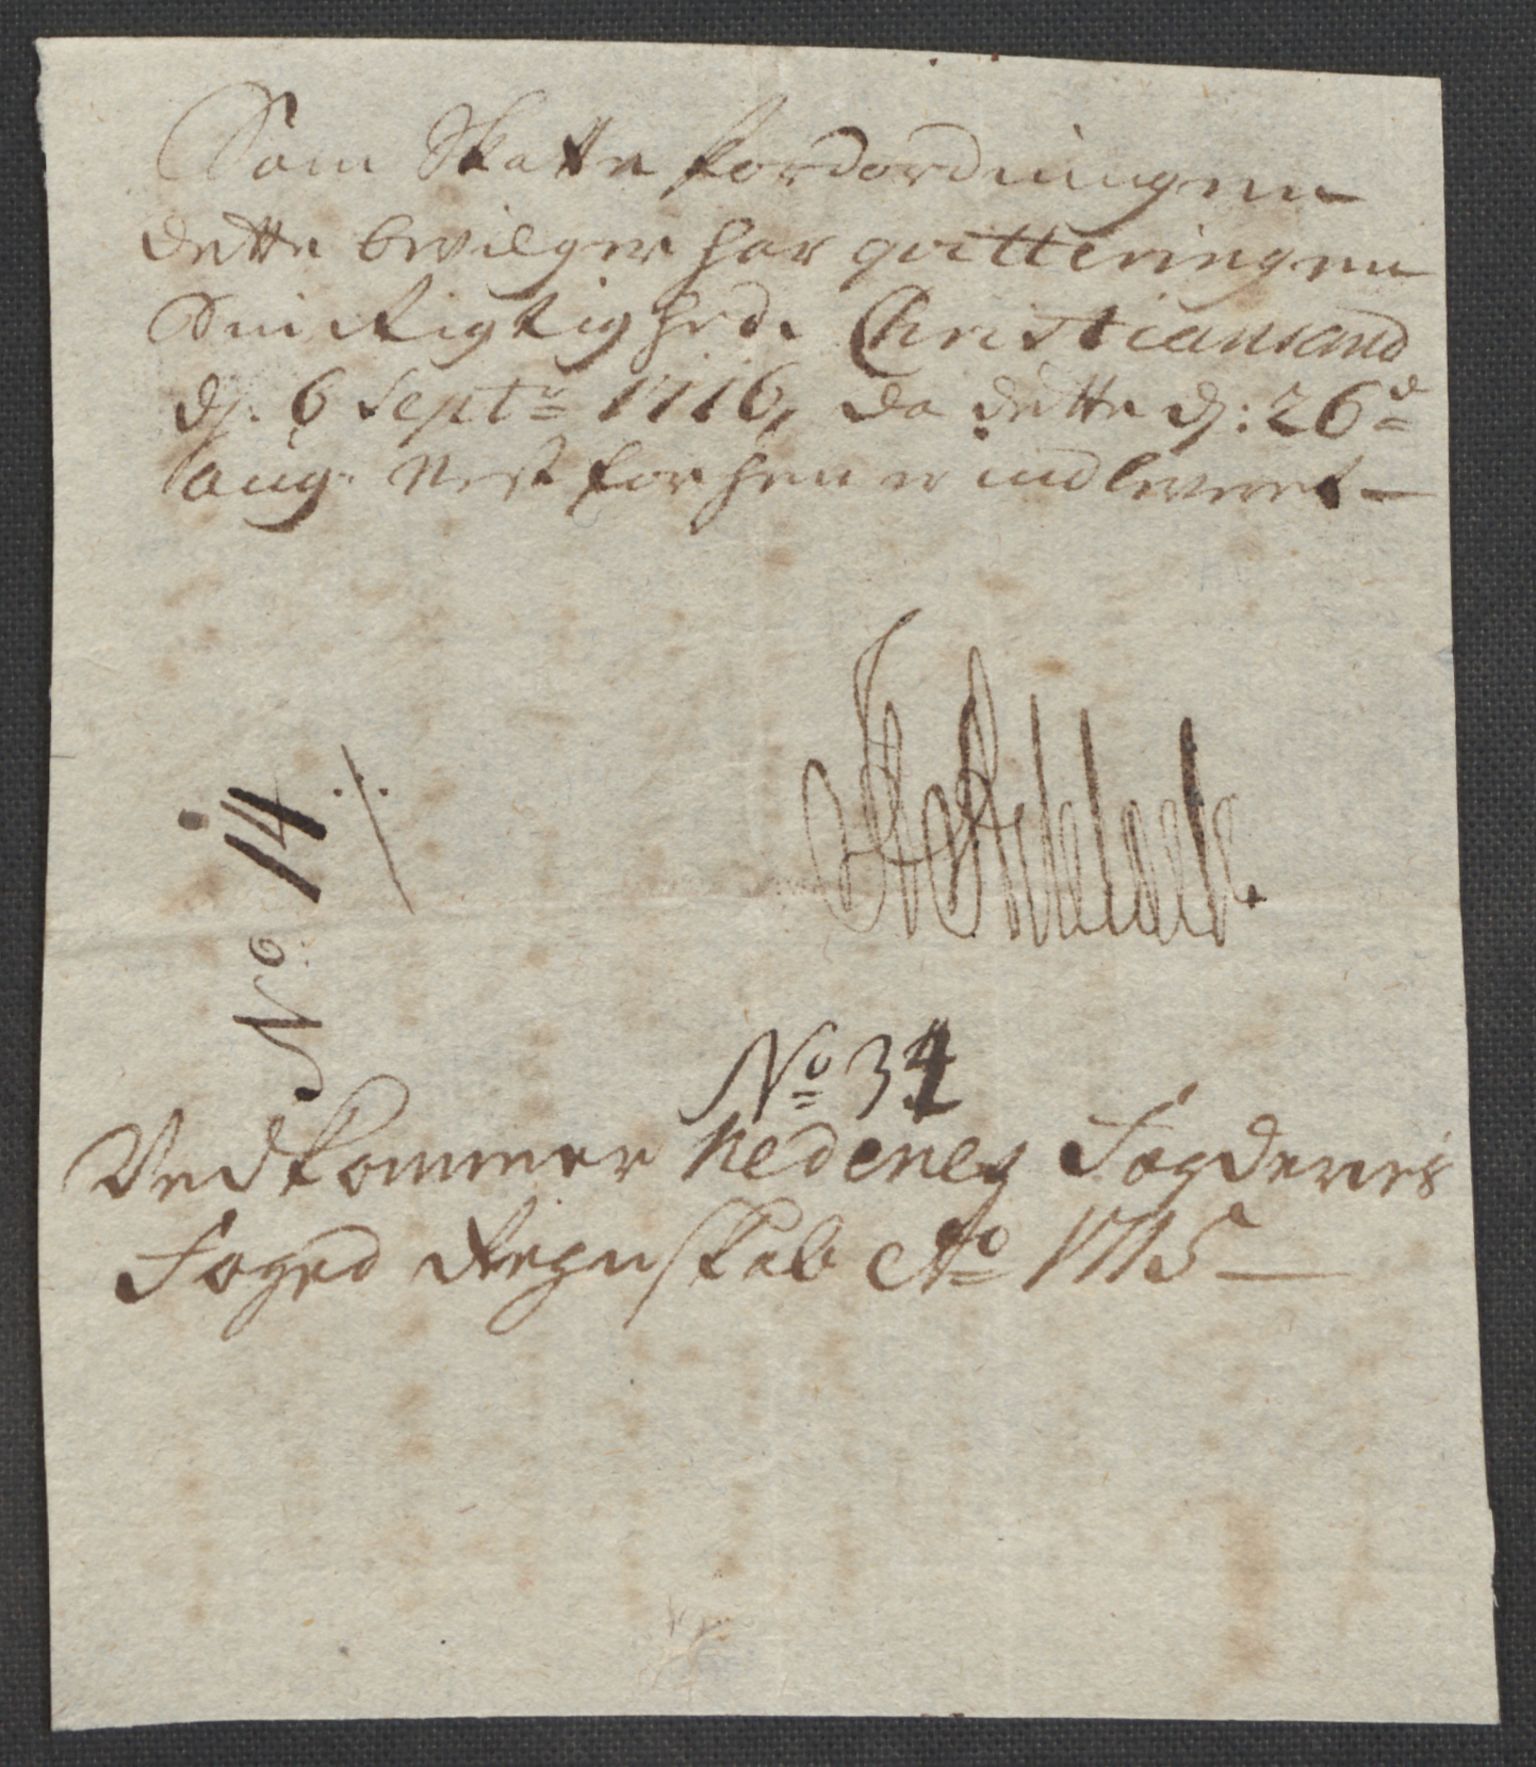 Som Skatte fordordningen
dette bevilger har qvitteringen
Sin Rigtighed. Christiansand
dj. 6 Septr 1716, da dette dj: 26de
aug. Nest forhen er indleveret —
No. 14 ·/.
No 34
Vedkommer Nedenes Fogderies
Foged Regnskab Ao 1715 —